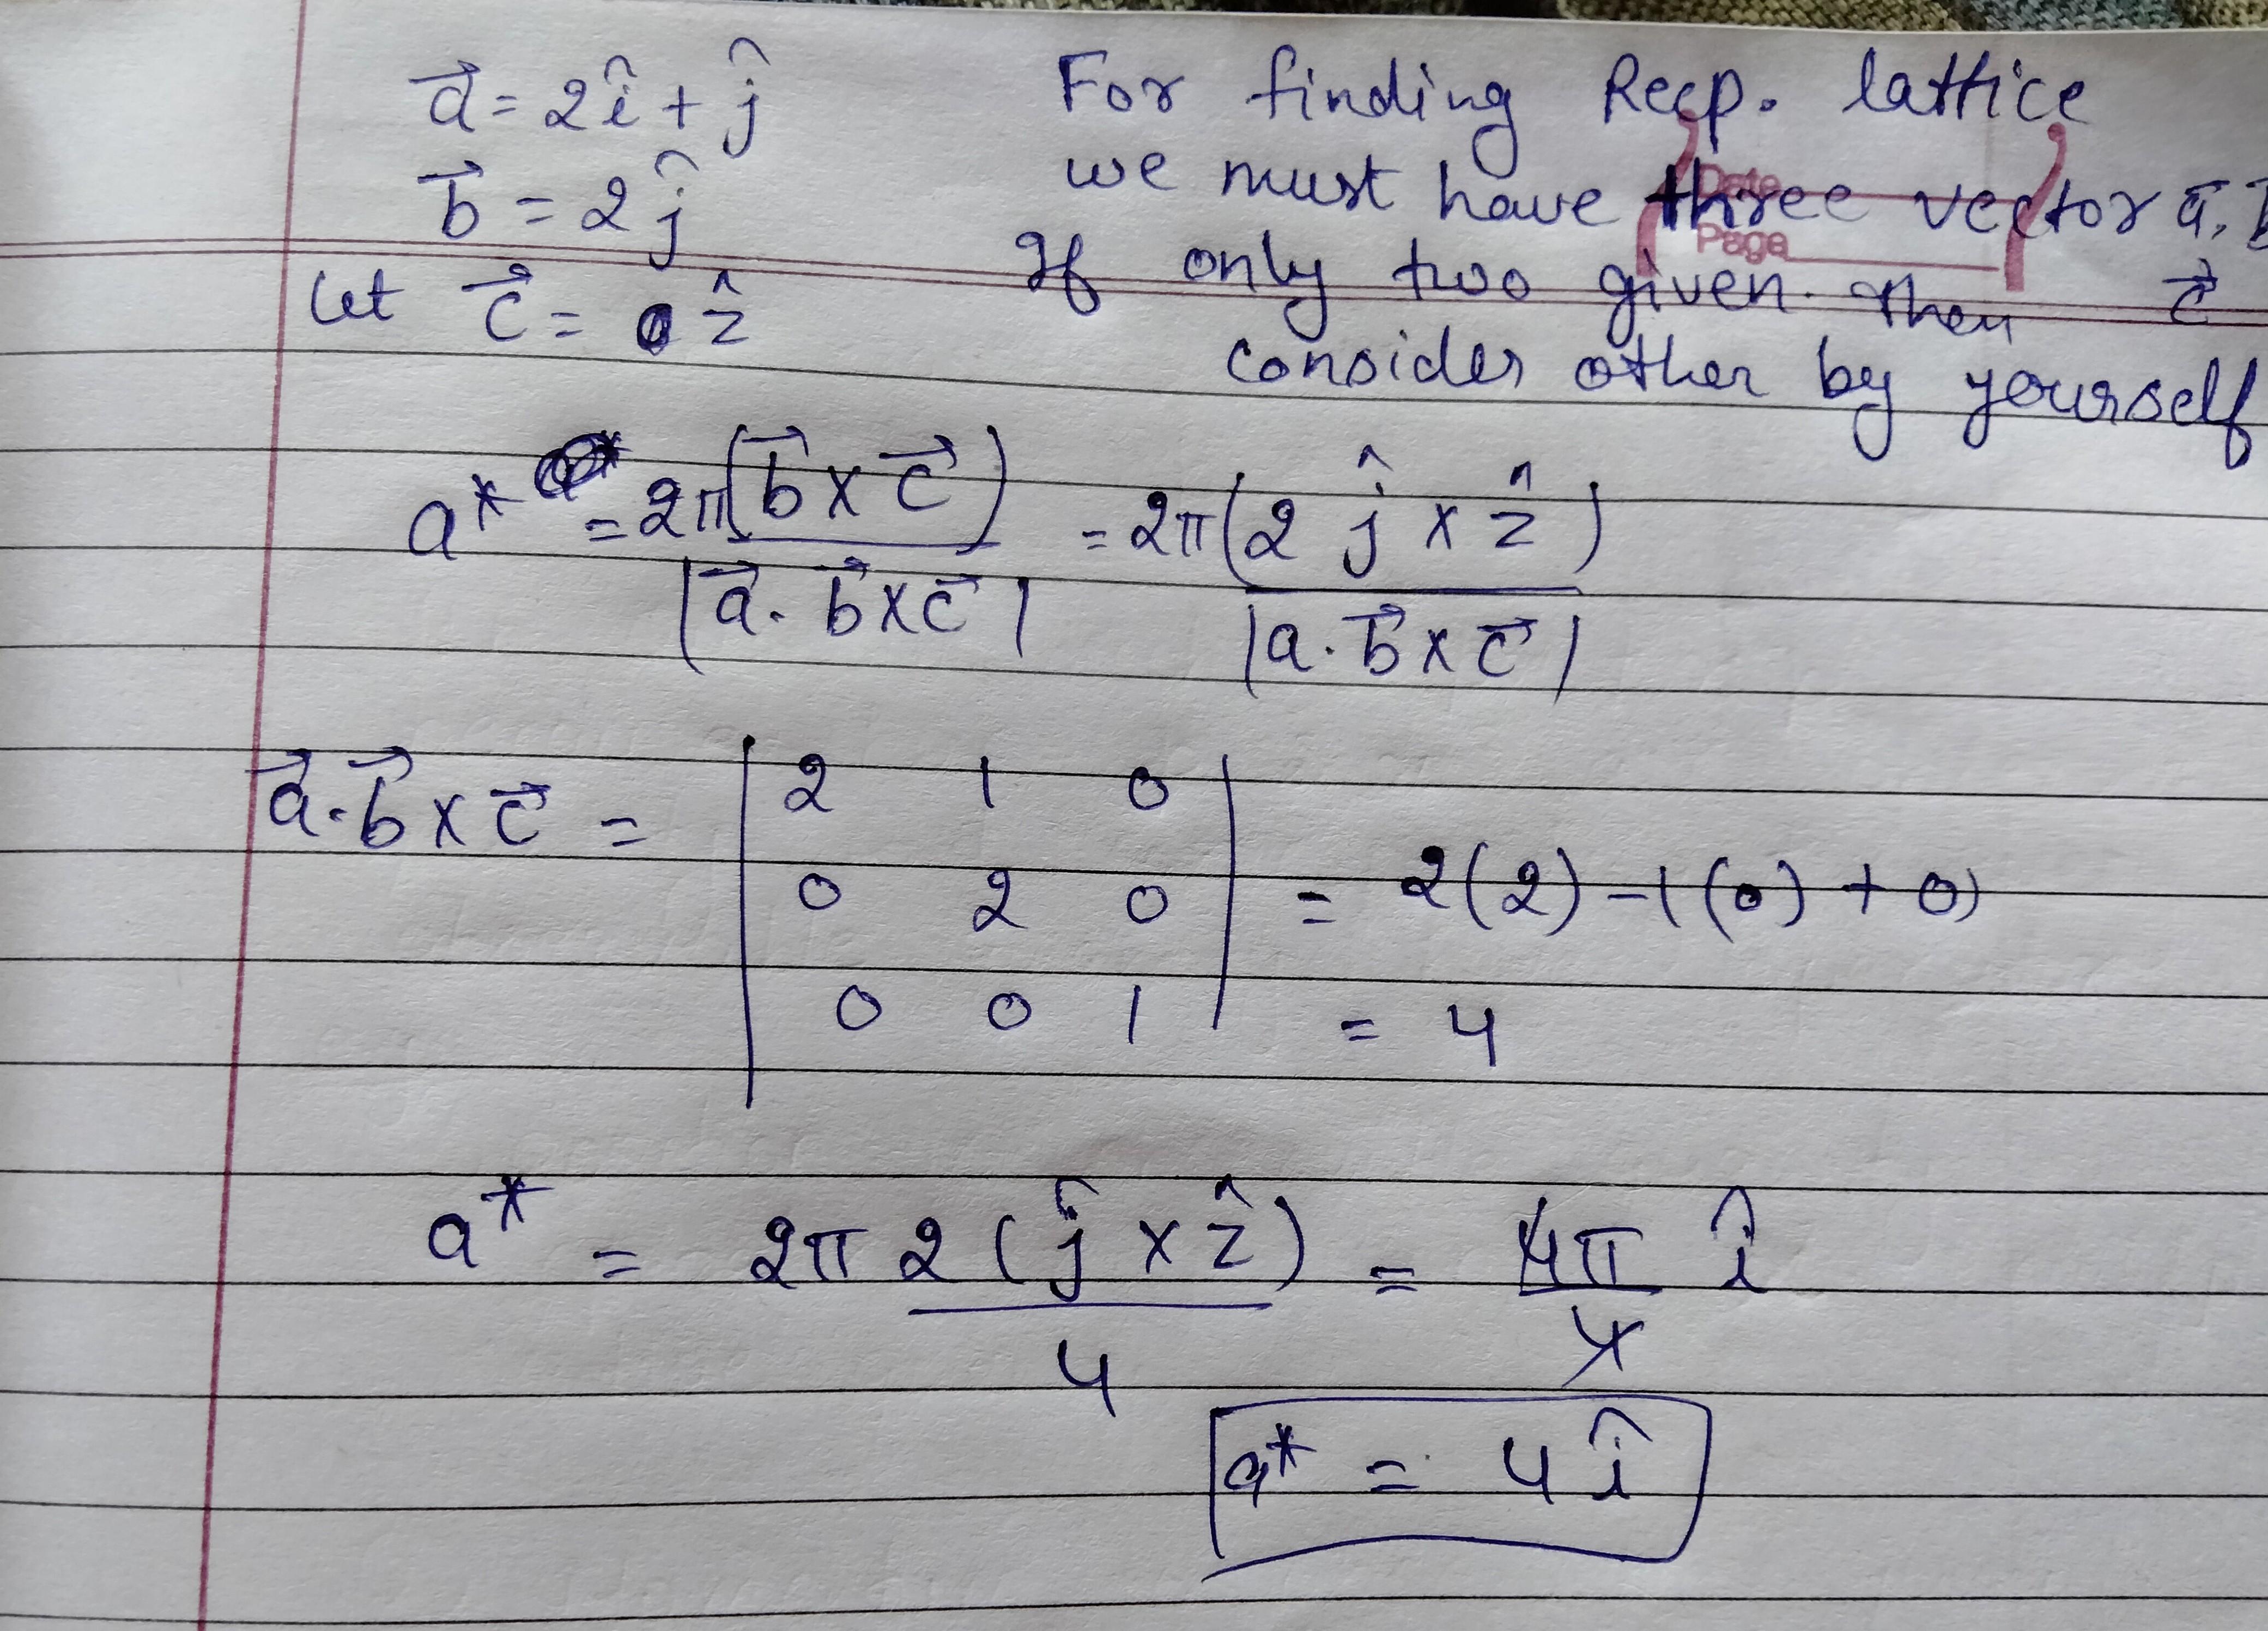 a⃗ = 2î + ĵ
b⃗ = 2ĵ
let c⃗ = ẑ
For finding Recp. lattice
we must have three vector a⃗,
If only two given. then c⃗
consider other by yourself
Date
Page
a* = 2π(b⃗ x c⃗) / |a⃗. b⃗ x c⃗| = 2π(2ĵ x ẑ) / |a. b⃗ x c⃗|
a⃗. b⃗ x c⃗ = | 2 1 0
0 2 0 | = 2(2) - 1(0) + 0)
0 0 1 | = 4
a* = 2π 2(ĵ x ẑ) / 4 = 4π / 4 î
a* = 4î